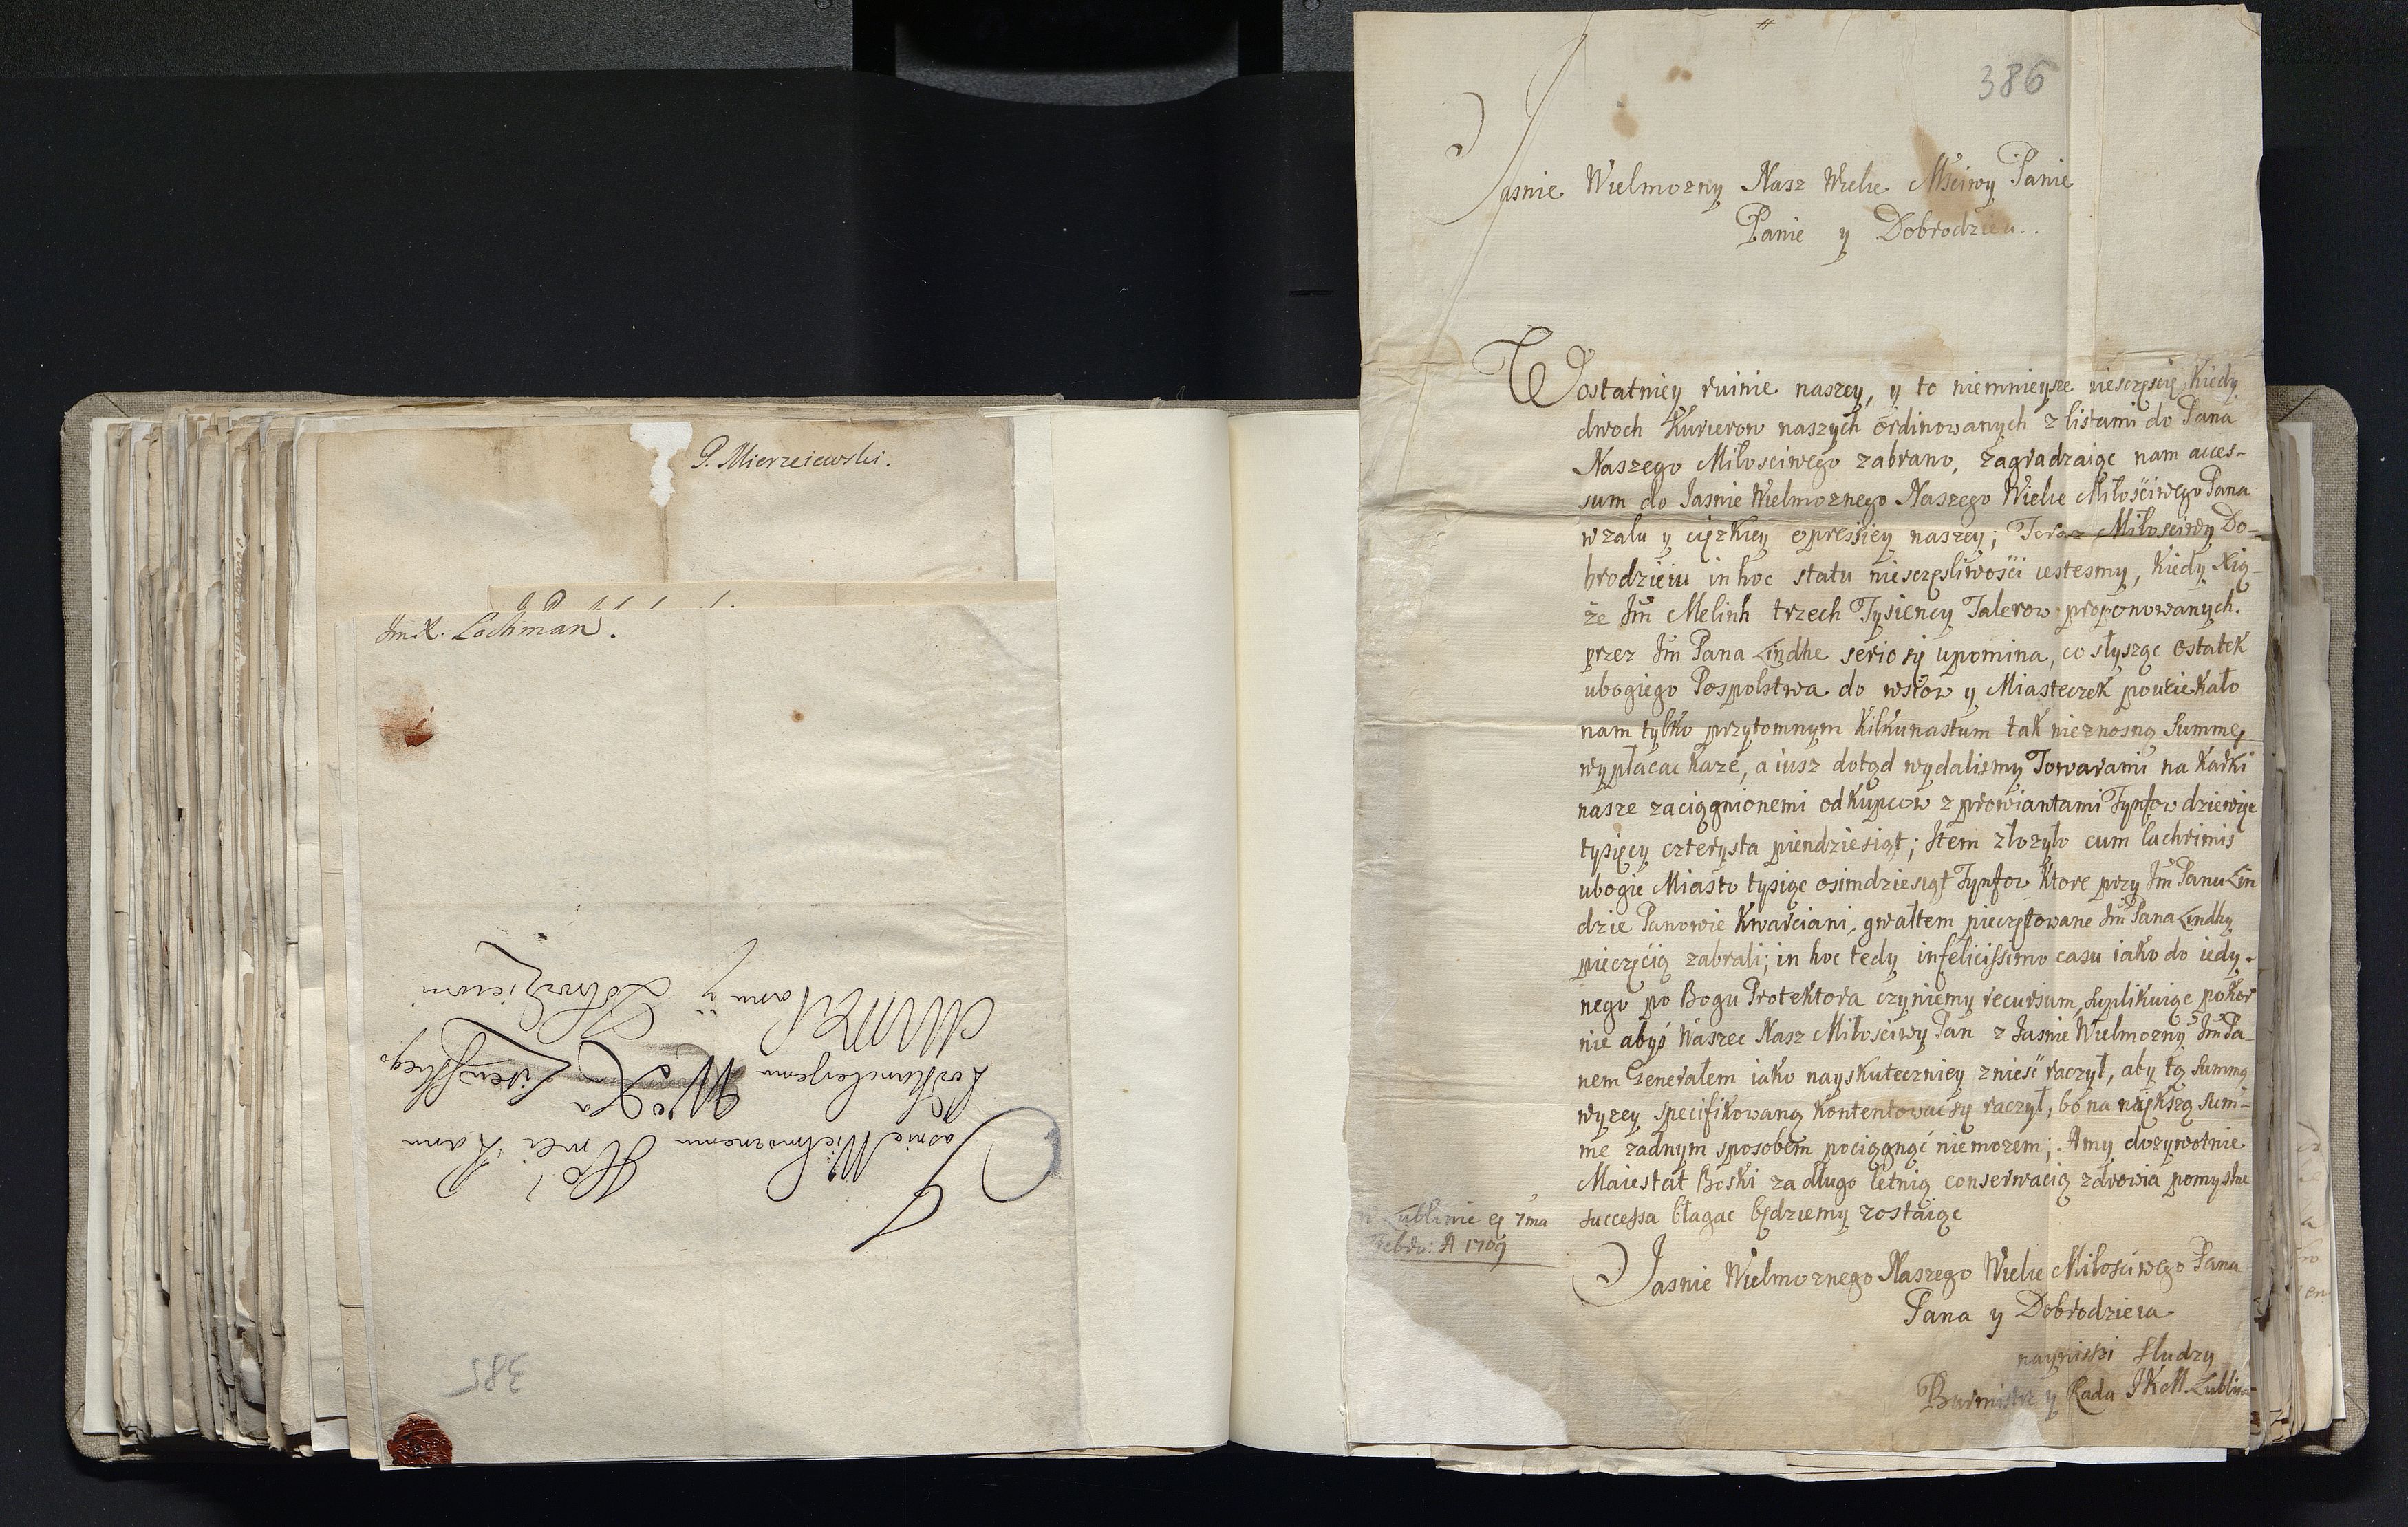 P. Mierzeiewski.
Im. X. Lochman.
Jasnie Wielmoznemu Imci Panu
Podkanclerzemu W. X. Litewskiego
Panu y Dobrodzieiowi
385
386
Jasnie Wielmozny Nasz Wielce Mściwy Panie
Panie y Dobrodzieiu..
W ostatniey ruinie naszey, y to niemnieysze niesczęscie, kiedy
dwoch Kurierow naszych ordinowanych z listami do Pana
Naszego Miłosciwego zabrano, zagradzaiąc nam acces-
sum do Jasnie Wielmoznego Naszego Wielce Miłościwego Pana
w zalu y cięzkiey opressiey naszey; Teraz Miłosciwy Do-
brodzieiu in hoc statu niesczęsliwości iestesmy, kiedy Xią-
że Jm̃ Melinh trzech Tysiency Talerow proponowanych.
przez Jm̃ Pana Lindhe serio się upomina, co słysząc ostatek
ubogiego Pospolstwa do wsiow y Miasteczek pouciekało
nam tylko przytomnym kilkunastum tak nieznosną Summę,
wypłacac kaze, a iusz dotąd wydalismy Towarami na karki
nasze zaciągnionemi od kupcow z prowiantami Tynfow dziewięc
tysięcy czterysta piendziesiąt; Item złozyło cum lachrimis
ubogie Miasto tysiąc osimdziesiąt Tynfow ktore przy Jm̃ Panu Lin
dzie Panowie Kwarciani, gwałtem pieczętowane Jm̃ Pana Lindhy
pieczęcią zabrali; in hoc tedy infelicissimo casu iako do iedy-
nego po Bogu Protektora czyniemy recursum, suplikuiąc pokor
nie abyś Waszec Nasz Miłosciwy Pan z Jasnie Wielmozny Jm̃ Pa-
nem Generałem iako nayskuteczniey znieść raczył, aby tą summą
wyzey specifikowaną kontentowac się raczył, bo na większą sum-
me żadnym sposobem pociągnąć niemozem; A my dozywotnie
Maiestat Boski za długo letnią conserwacią zdrowia pomyslne
successa błagac będziemy zostaiąc
w Lublinie ej 7ma
Febru: A 1709
Jasnie Wielmoznego Naszego Wielce Miłosciwego Pana
Pana y Dobrodzieia-
naynissi Słudzy
Burmistrz y Rada JKM. Lublina